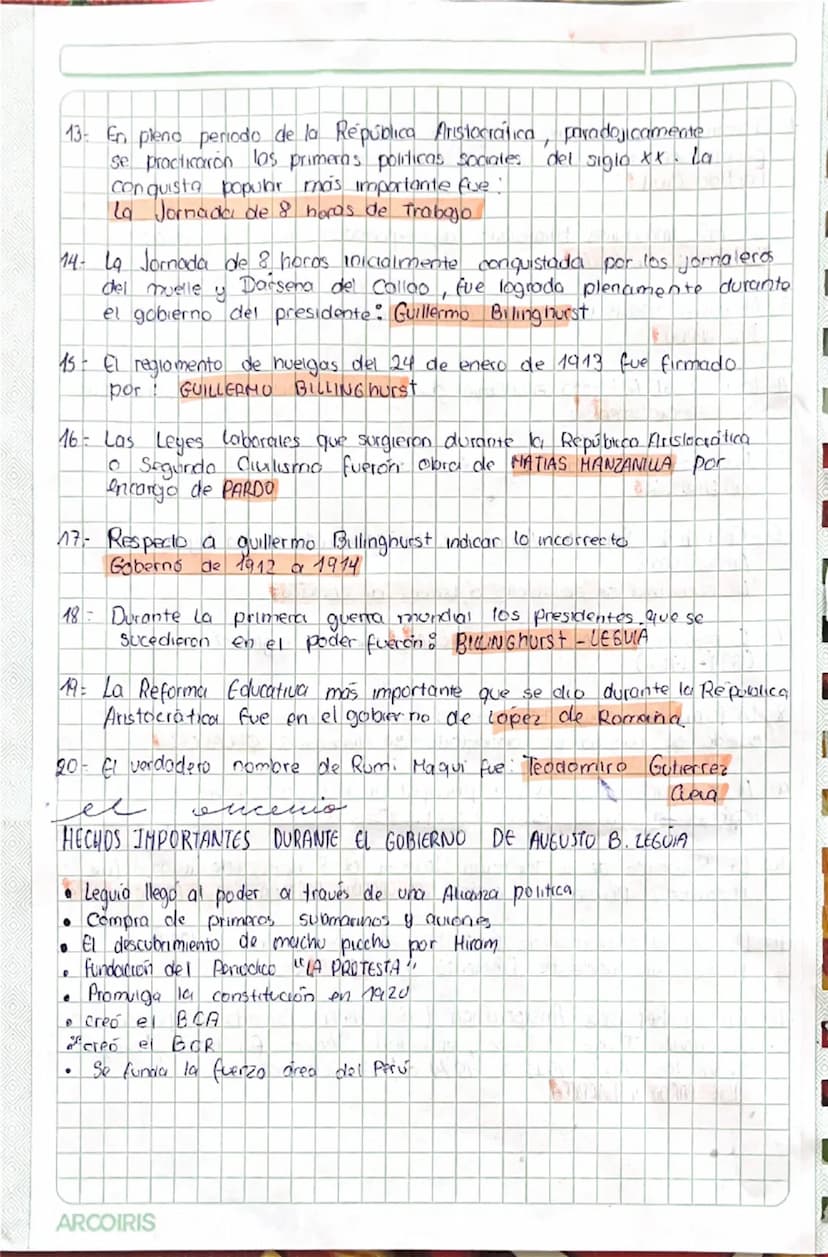 13- En pleno periodo de la República Aristocrática, paradojicamente
se practicaron las primeras políticas sociales del siglo xx. La
conquista popular más importante fue:
La Jornada de 8 horas de Trabajo
14- La Jornada de 8 horas inicialmente conquistada por los jornaleros
del muelle y Darsena del Callao, fue lograda plenamente durante
el gobierno del presidente: Guillermo Bilinghurst
15- El reglamento de huelgas del 24 de enero de 1913 fue firmado
por: GUILLERMO BILLINGhurst
16- Las Leyes laborales que surgieron durante la República Aristocrática
o Segundo Civilismo fueron obra de MATIAS MANZANILLA por
encargo de PARDO
17- Respecto a guillermo Billinghurst indicar lo incorrecto
Gobernó de 1912 a 1914
18- Durante la primera guerra mundial los presidentes que se
sucedieron en el poder fueron: BILLINGhurst - LEGUIA
19- La Reforma Educativa más importante que se dio durante la República
Aristocrática fue en el gobierno de Lopez de Romaña
20- El verdadero nombre de Rumi Maqui fue: Teodomiro Gutierrez
Cueva
el oncenio
HECHOS IMPORTANTES DURANTE EL GOBIERNO DE AUGUSTO B. LEGUÍA
• Leguia llegó al poder a través de una Alianza política
• Compra de primeros submarinos y aviones
• El descubrimiento de machu picchu por Hiram
• fundación del Periodico "LA PROTESTA"
• Promulga la constitución en 1920
• creó el BCA
• creó el BCR
• Se funda la fuerza área del Perú
ARCOIRIS